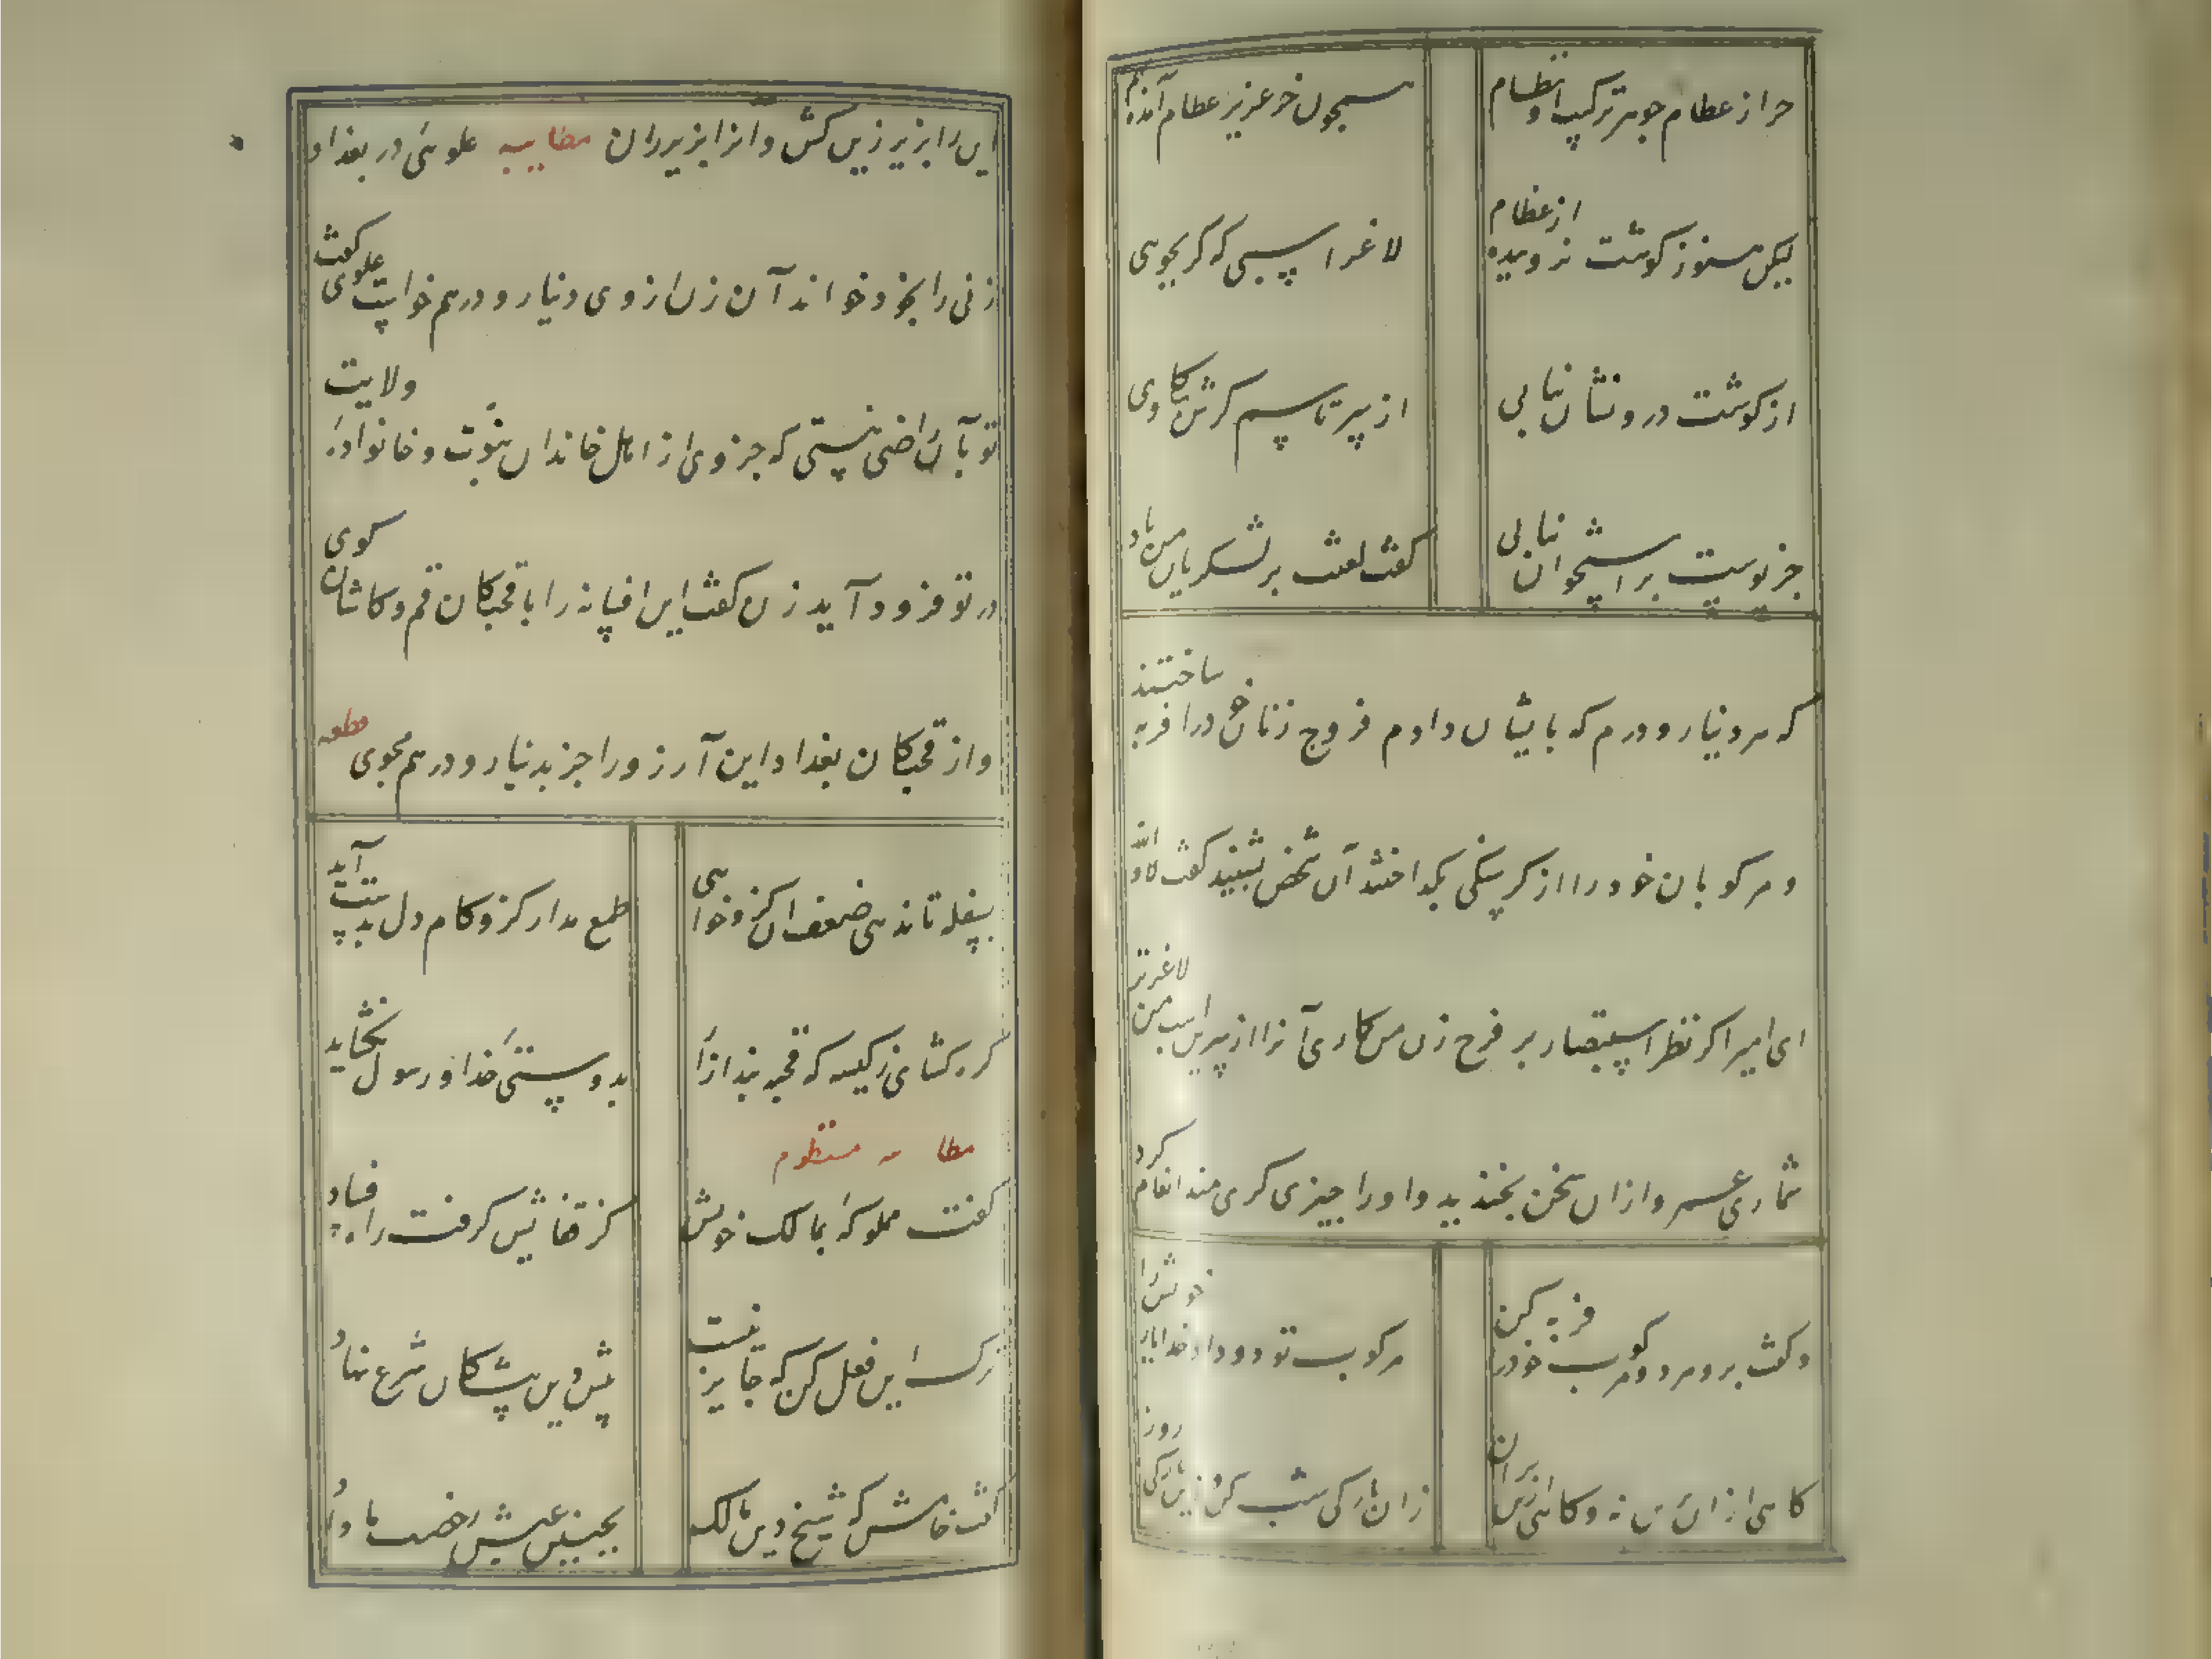 جز از عظام جوهر ترکیب او نظام
همچون خر عزیر عظام آمده
لیکن هنوز گوشت نروییده از عظام
لاغر اسبی که گر بجوی
از گوشت درو نشان نیابی
از سر تا سم گرش بکاوی
جز پوست بر استخوان نیابی
گفت لعنت بر لشکریان من باد
که هر دینار و درم که بایشان دادم فروج زنان خود را فربه ساختند
و مرکوبان خود را از گرسنگی بگداختند آن شخص بشنید گفت والله
ای امیر اگر نظر استبصار بر فرج زن من گماری آنرا از سرین اسب من لاغرتر
شماری عمرو ازان سخن بخندید و او را چیزی کرمند انعام کرد
و گفت برو هر دو مرکوب خود را فربه کن
مرکوب تو دو داد خدا یار خویش را
گاهی ازان سانه و گاهی ازین بران
زان بارگی شب کن و زین بارگی روز
این را بزیر زین کش و آنرا بزیر ران مطایبه علویی در بغداد
زنی را بخود خواند آن زن از وی دینار و درهم خواست علوی گفت
تو بآن راضی نیستی که جزوی از اهل خاندان نبوت و خانواده ولایت
در تو فرود آید زن گفت این افسانه را با قحبکان قم و کاشان گوی
و از قحبکان بغداد این آرزو را جز بدینار و درهم مجوی قطعه
بسفله تا ندهی ضعف آن کزو خواهی
طمع مدار کزو کام دل بدست آید
گره گشای ز کیسه که قحبه بند ازار
بدوستی خدا و رسول نگشاید
مطایبه منظوم
گفت مملوکه بمالک خویش
کز قفایش گرفت راه فساد
ترک این فعل کن که جایز نیست
پیش دین پیشگان شرع نهاد
گفت خامش که شیخ دین مالک
بچنین عیش رخصت ما داد